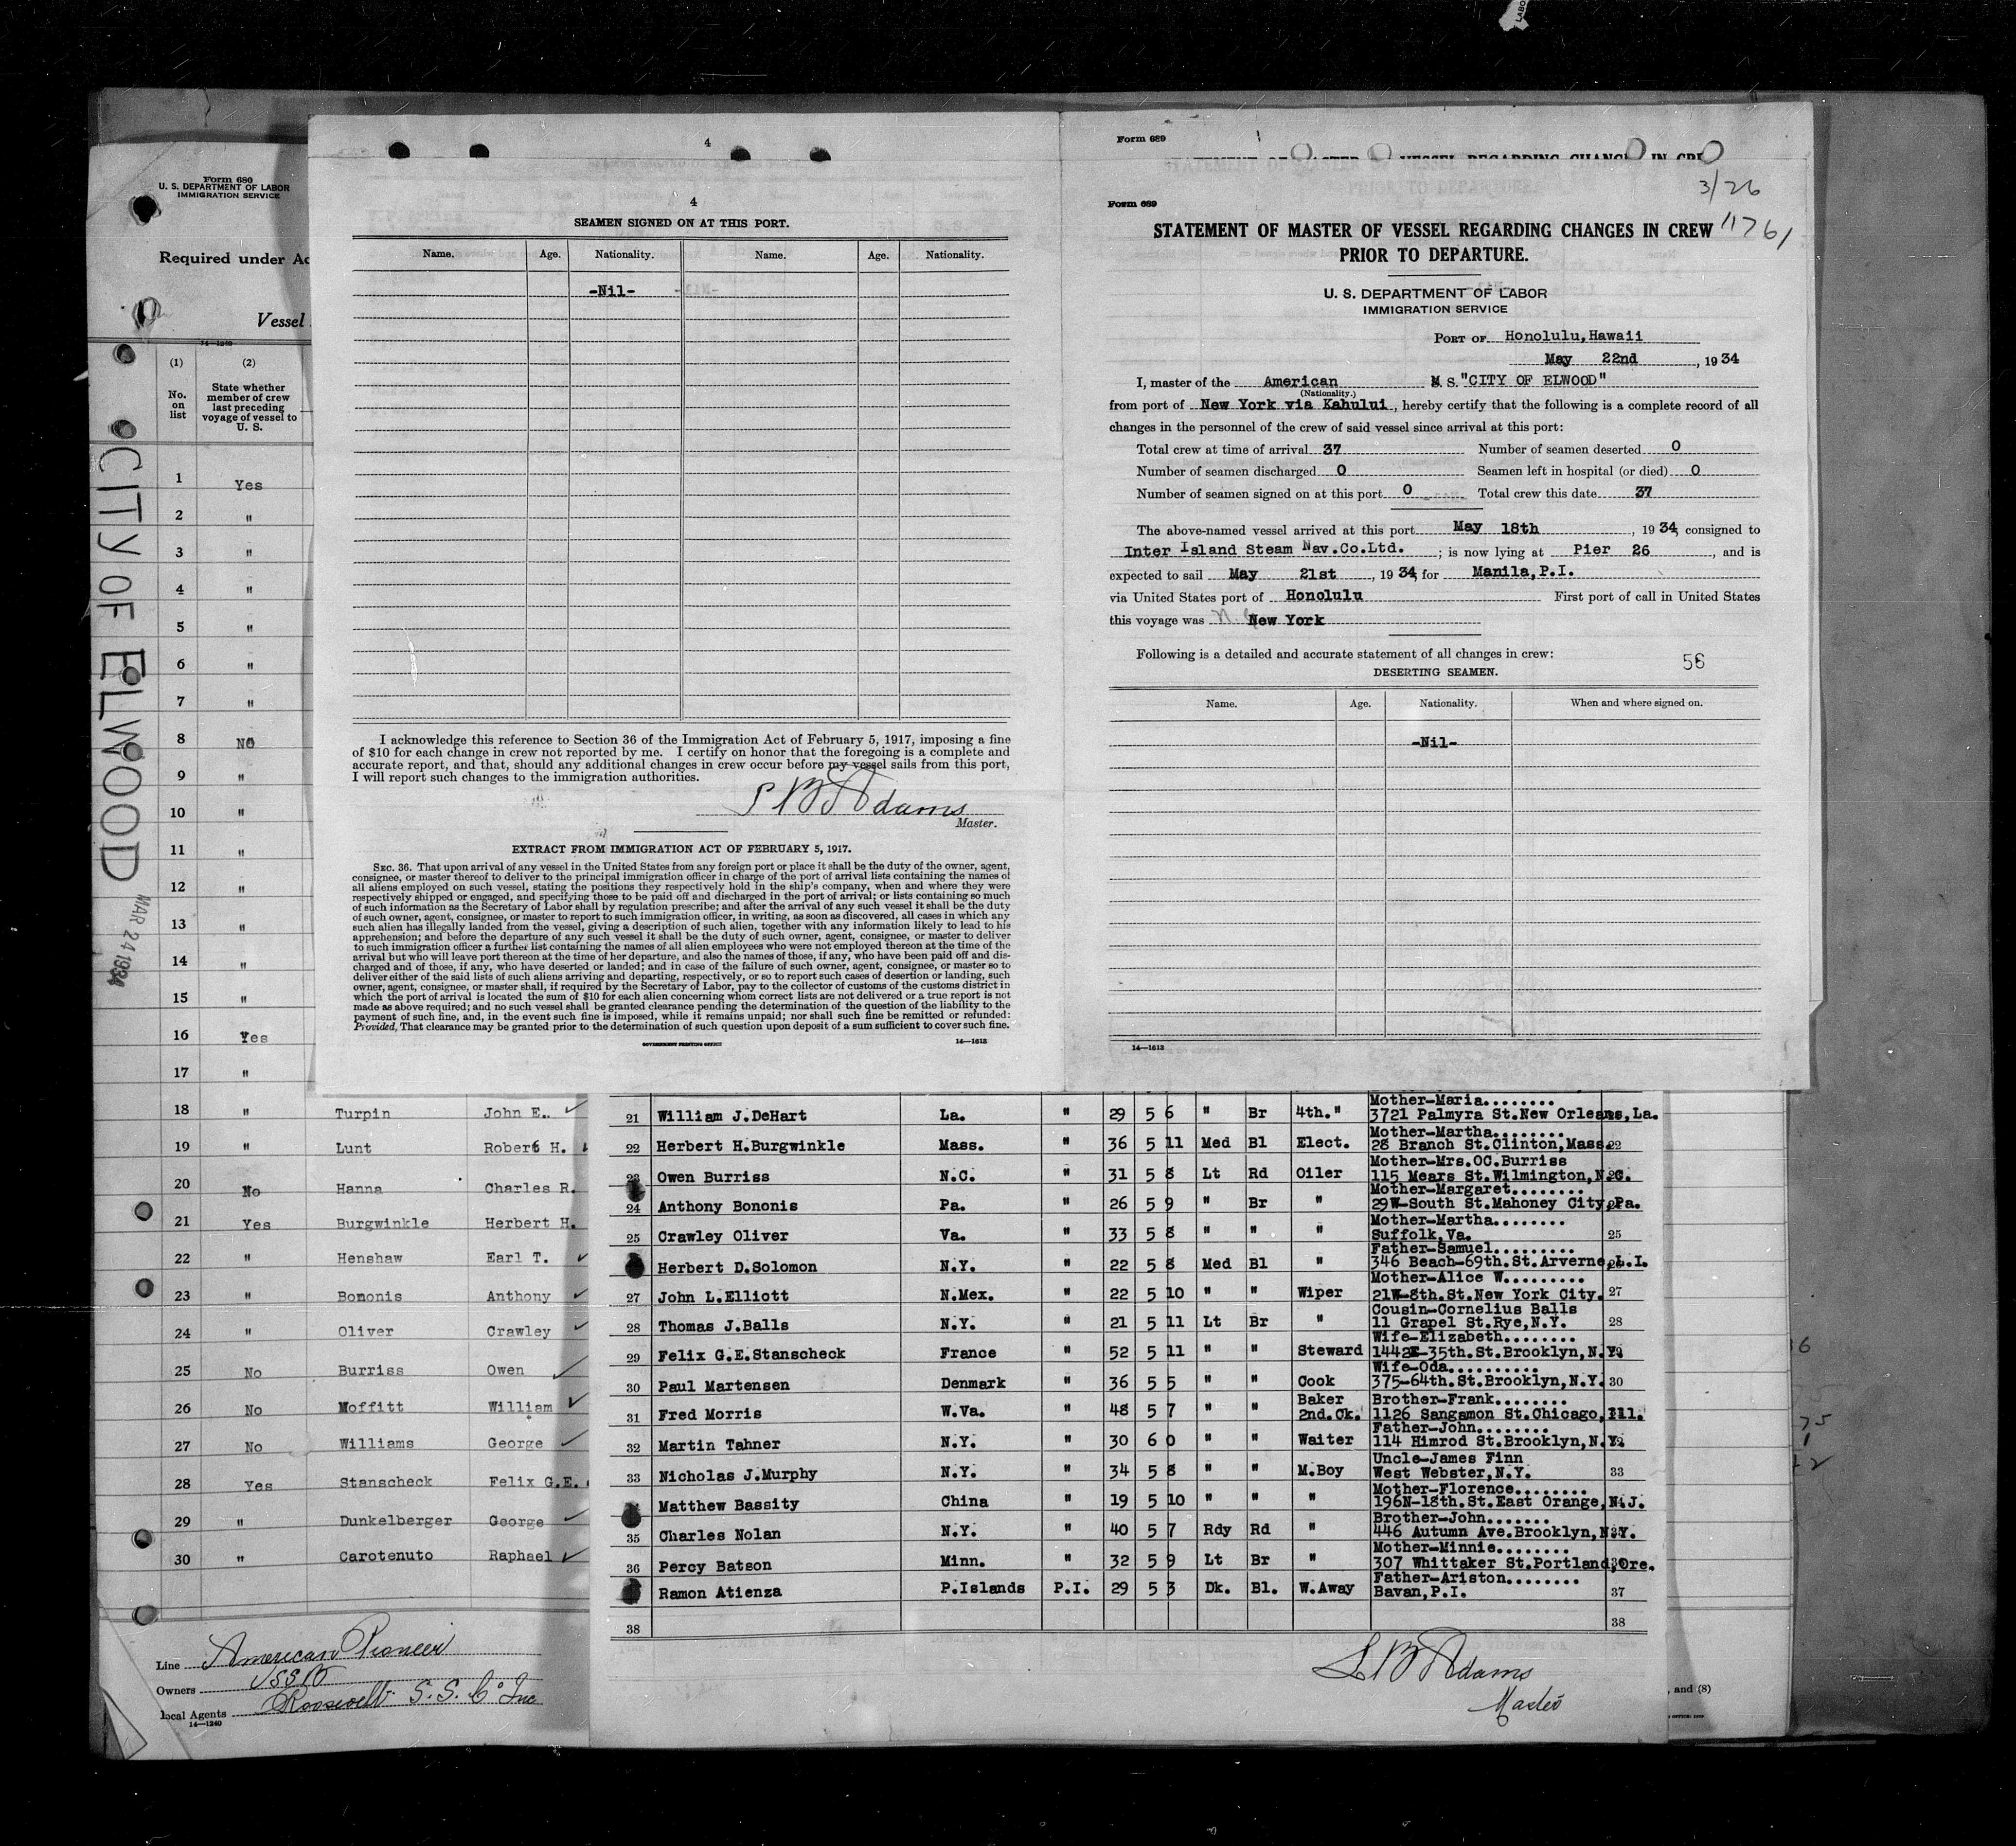 Form 680
U. S. DEPARTMENT OF LABOR
IMMIGRATION SERVICE
Required under Ac
Vessel
14—1240
(1) (2)
No. on list
State whether member of crew last preceding voyage of vessel to U. S.
CITY OF ELWOOD
MAR 24 1934
1 Yes
2 "
3 "
4 "
5 "
6 "
7 "
8 No
9 "
10 "
11 "
12 "
13 "
14 "
15 "
16 Yes
17 "
18 " Turpin John E.
19 " Lunt Robert H.
20 No Hanna Charles R.
21 Yes Burgwinkle Herbert H.
22 " Henshaw Earl T.
23 " Bononis Anthony
24 " Oliver Crawley
25 No Burriss Owen
26 No Moffitt William
27 No Williams George
28 Yes Stanscheck Felix G.E.
29 " Dunkelberger George
30 " Carotenuto Raphael
Line American Pioneer
Owners USSB
local Agents Roosevelt S.S. Co Inc
14—1240
4
4
SEAMEN SIGNED ON AT THIS PORT.
Name. Age. Nationality. Name. Age. Nationality.
-Nil-
I acknowledge this reference to Section 36 of the Immigration Act of February 5, 1917, imposing a fine
of $10 for each change in crew not reported by me. I certify on honor that the foregoing is a complete and
accurate report, and that, should any additional changes in crew occur before my vessel sails from this port,
I will report such changes to the immigration authorities.
S B Adams
Master.
EXTRACT FROM IMMIGRATION ACT OF FEBRUARY 5, 1917.
SEC. 36. That upon arrival of any vessel in the United States from any foreign port or place it shall be the duty of the owner, agent,
consignee, or master thereof to deliver to the principal immigration officer in charge of the port of arrival lists containing the names of
all aliens employed on such vessel, stating the positions they respectively hold in the ship's company, when and where they were
respectively shipped or engaged, and specifying those to be paid off and discharged in the port of arrival; or lists containing so much
of such information as the Secretary of Labor shall by regulation prescribe; and after the arrival of any such vessel it shall be the duty
of such owner, agent, consignee, or master to report to such immigration officer, in writing, as soon as discovered, all cases in which any
such alien has illegally landed from the vessel, giving a description of such alien, together with any information likely to lead to his
apprehension; and before the departure of any such vessel it shall be the duty of such owner, agent, consignee, or master to deliver
to such immigration officer a further list containing the names of all alien employees who were not employed thereon at the time of the
arrival but who will leave port thereon at the time of her departure, and also the names of those, if any, who have been paid off and dis-
charged and of those, if any, who have deserted or landed; and in case of the failure of such owner, agent, consignee, or master so to
deliver either of the said lists of such aliens arriving and departing, respectively, or so to report such cases of desertion or landing, such
owner, agent, consignee, or master shall, if required by the Secretary of Labor, pay to the collector of customs of the customs district in
which the port of arrival is located the sum of $10 for each alien concerning whom correct lists are not delivered or a true report is not
made as above required; and no such vessel shall be granted clearance pending the determination of the question of the liability to the
payment of such fine, and, in the event such fine is imposed, while it remains unpaid; nor shall such fine be remitted or refunded:
Provided, That clearance may be granted prior to the determination of such question upon deposit of a sum sufficient to cover such fine.
GOVERNMENT PRINTING OFFICE 14—1613
Form 689
STATEMENT OF MASTER OF VESSEL REGARDING CHANGES IN CREW
3/26
Form 689
STATEMENT OF MASTER OF VESSEL REGARDING CHANGES IN CREW 11761
PRIOR TO DEPARTURE.
U. S. DEPARTMENT OF LABOR
IMMIGRATION SERVICE
PORT OF Honolulu, Hawaii
May 22nd, 1934
I, master of the American M. S. "CITY OF ELWOOD"
(Nationality.)
from port of New York via Kahului, hereby certify that the following is a complete record of all
changes in the personnel of the crew of said vessel since arrival at this port:
Total crew at time of arrival 37 Number of seamen deserted 0
Number of seamen discharged 0 Seamen left in hospital (or died) 0
Number of seamen signed on at this port 0 Total crew this date 37
The above-named vessel arrived at this port May 18th, 1934, consigned to
Inter Island Steam Nav.Co.Ltd.; is now lying at Pier 26, and is
expected to sail May 21st, 1934, for Manila, P.I.
via United States port of Honolulu First port of call in United States
this voyage was New York
Following is a detailed and accurate statement of all changes in crew:
56
DESERTING SEAMEN.
Name. Age. Nationality. When and where signed on.
-Nil-
14—1613
Mother-Maria........
21 William J.DeHart La. " 29 5 6 " Br 4th." 3721 Palmyra St.New Orleans,La.
Mother-Martha........
22 Herbert H.Burgwinkle Mass. " 36 5 11 Med Bl Elect. 28 Branch St.Clinton,Mass. 22
Mother-Mrs.OC.Burriss
23 Owen Burriss N.C. " 31 5 8 Lt Rd Oiler 115 Mears St.Wilmington,N.C.
Mother-Margaret........
24 Anthony Bononis Pa. " 26 5 9 " Br " 29W-South St.Mahoney City,Pa.
Mother-Martha........
25 Crawley Oliver Va. " 33 5 8 " " " Suffolk,Va. 25
Father-Samuel.........
Herbert D.Solomon N.Y. " 22 5 8 Med Bl " 346 Beach-69th.St.Arverne,L.I.
Mother-Alice W.........
27 John L.Elliott N.Mex. " 22 5 10 " " Wiper 21W-8th.St.New York City. 27
Cousin-Cornelius Balls
28 Thomas J.Balls N.Y. " 21 5 11 Lt Br " 11 Grapel St.Rye,N.Y. 28
Wife-Elizabeth........
29 Felix G.E.Stanscheck France " 52 5 11 " " Steward 1442E-35th.St.Brooklyn,N.Y.
Wife-Oda..........
30 Paul Martensen Denmark " 36 5 5 " " Cook 375-64th.St.Brooklyn,N.Y. 30
Baker Brother-Frank........
31 Fred Morris W.Va. " 48 5 7 " " 2nd.Ck. 1126 Sangamon St.Chicago,Ill.
Father-John........
32 Martin Tahner N.Y. " 30 6 0 " " Waiter 114 Himrod St.Brooklyn,N.Y.
Uncle-James Finn
33 Nicholas J.Murphy N.Y. " 34 5 8 " " M.Boy West Webster,N.Y. 33
Mother-Florence........
Matthew Bassity China " 19 5 10 " " " 196N-18th.St.East Orange,N.J.
Brother-John.......
35 Charles Nolan N.Y. " 40 5 7 Rdy Rd " 446 Autumn Ave.Brooklyn,N.Y.
Mother-Minnie........
36 Percy Batson Minn. " 32 5 9 Lt Br " 307 Whittaker St.Portland,Ore.
Father-Ariston........
Ramon Atienza P.Islands P.I. 29 5 3 Dk. Bl. W.Away Bavan,P.I. 37
38 38
S B Adams
Master
, and (8)